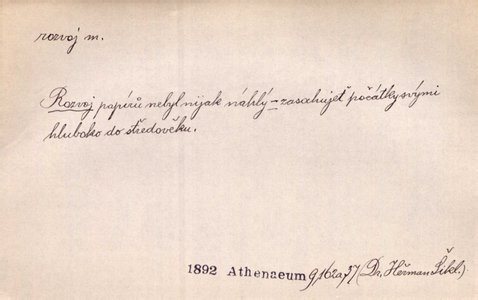 rozvoj m.
Rozvoj papírů nebyl nijak náhlý – zasahujeť počátky svými
hluboko do středověku.
1892 Athenaeum 9, 162 a, 57 (Dr. Heřman Šikl.)